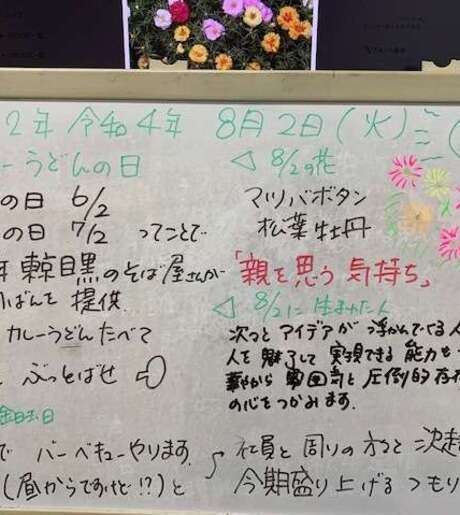 2年 令和4年 8月2日(火)
ーうどんの日
の日 6/2
の日 7/2 ってことで
年 東京目黒のそば屋さんが
かばんを 提供
カレーうどんたべて
ぶっとばせ
で バーベキューやります
(昼からですけど!?)と
◁ 8/2の花
マツバボタン
松葉牡丹
「親を思う 気持ち」
◁ 8/2に 生まれた人
次っと アイデアが 浮かんでくる人
人を 魅了して 実現できる 能力を
華やから 雰囲気と 圧倒的存在
の心を つかみます.
社員と 周りの 方々と
今期盛り上げる つもり